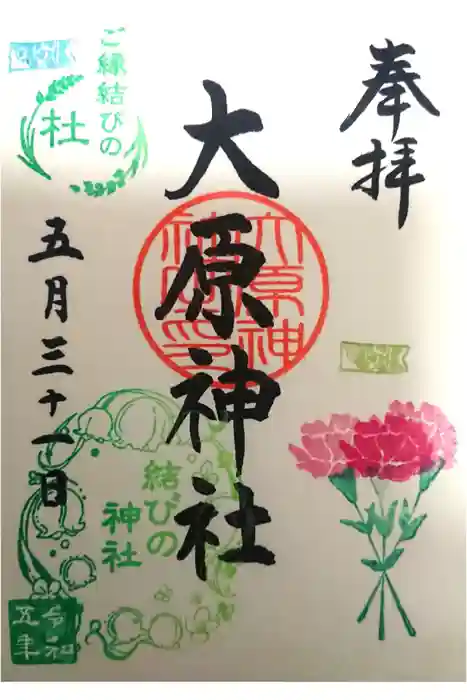 奉拝
大原神社
大原神社印
ご縁結びの
杜
五月三十一日
結びの
神社
令和
五年